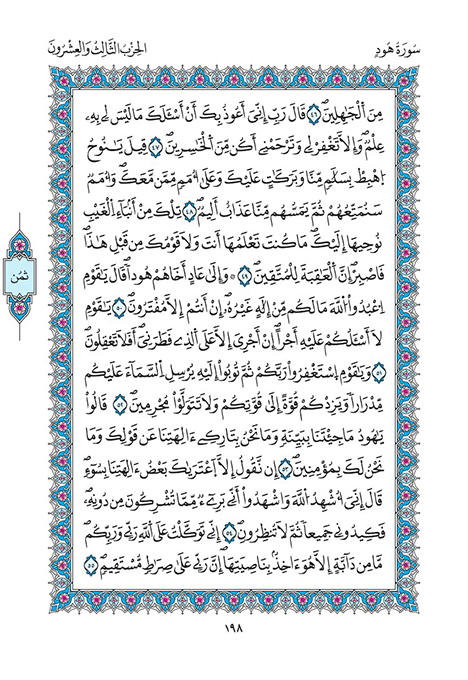 سُورَةُ هُودٍ
الحِزْبُ الثَّالِثُ وَالعِشْرُونَ
مِنَ اَ۬لْجَٰهِلِينَۖ ٤٦ قَالَ رَبِّ إِنِّيَ أَعُوذُ بِكَ أَنْ أَسْـَٔلَكَ مَا لَيْسَ لِے بِهِۦ
عِلْمٞۖ وَإِلَّا تَغْفِرْ لِے وَتَرْحَمْنِےٓ أَكُن مِّنَ اَ۬لْخَٰسِرِينَۖ ٤٧ قِيلَ يَٰنُوحُ
اُ۪هْبِطْ بِسَلَٰمٖ مِّنَّا وَبَرَكَٰتٍ عَلَيْكَ وَعَلَىٰٓ أُمَمٖ مِّمَّن مَّعَكَۖ وَأُمَمٞ
سَنُمَتِّعُهُمْ ثُمَّ يَمَسُّهُم مِّنَّا عَذَابٌ أَلِيمٞۖ ٤٨ تِلْكَ مِنْ أَنۢبَآءِ اِ۬لْغَيْبِ
نُوحِيهَآ إِلَيْكَۖ مَا كُنتَ تَعْلَمُهَآ أَنتَ وَلَا قَوْمُكَ مِن قَبْلِ هَٰذَاۖ
فَاصْبِرِۖ اِنَّ اَ۬لْعَٰقِبَةَ لِلْمُتَّقِينَۖ ٤٩ ۞ وَإِلَىٰ عَادٍ أَخَاهُمْ هُوداٗۖ قَالَ يَٰقَوْمِ
اِ۟عْبُدُواْ اُ۬للَّهَ مَا لَكُم مِّنِ اِلَٰهٍ غَيْرُهُۥٓۖ إِنْ أَنتُمْ إِلَّا مُفْتَرُونَۖ ٥٠ يَٰقَوْمِ
لَآ أَسْـَٔلُكُمْ عَلَيْهِ أَجْراًۖ اِنْ أَجْرِيَ إِلَّا عَلَى اَ۬لذِے فَطَرَنِيَۖ أَفَلَا تَعْقِلُونَۖ
٥١ وَيَٰقَوْمِ اِ۪سْتَغْفِرُواْ رَبَّكُمْ ثُمَّ تُوبُوٓاْ إِلَيْهِ يُرْسِلِ اِ۬لسَّمَآءَ عَلَيْكُم
مِّدْرَاراٗ وَيَزِدْكُمْ قُوَّةً إِلَىٰ قُوَّتِكُمْ وَلَا تَتَوَلَّوْاْ مُجْرِمِينَۖ ٥٢ قَالُواْ
يَٰهُودُ مَا جِئْتَنَا بِبَيِّنَةٖ وَمَا نَحْنُ بِتَارِكِےٓ ءَالِهَتِنَا عَن قَوْلِكَ وَمَا
نَحْنُ لَكَ بِمُؤْمِنِينَۖ ٥٣ إِن نَّقُولُ إِلَّا اَ۪عْتَرَىٰكَ بَعْضُ ءَالِهَتِنَا بِسُوٓءٖۖ
قَالَ إِنِّيَ أُشْهِدُ اُ۬للَّهَ وَاشْهَدُوٓاْ أَنِّے بَرِےٓءٞ مِّمَّا تُشْرِكُونَ مِن دُونِهِۦۖ
فَكِيدُونِے جَمِيعاٗ ثُمَّ لَا تُنظِرُونِۖ ٥٤ إِنِّے تَوَكَّلْتُ عَلَى اَ۬للَّهِ رَبِّے وَرَبِّكُمۖ
مَّا مِن دَآبَّةٍ إِلَّا هُوَ ءَاخِذُۢ بِنَاصِيَتِهَآۖ إِنَّ رَبِّے عَلَىٰ صِرَٰطٖ مُّسْتَقِيمٖۖ ٥٥
ثُمُن
١٩٨